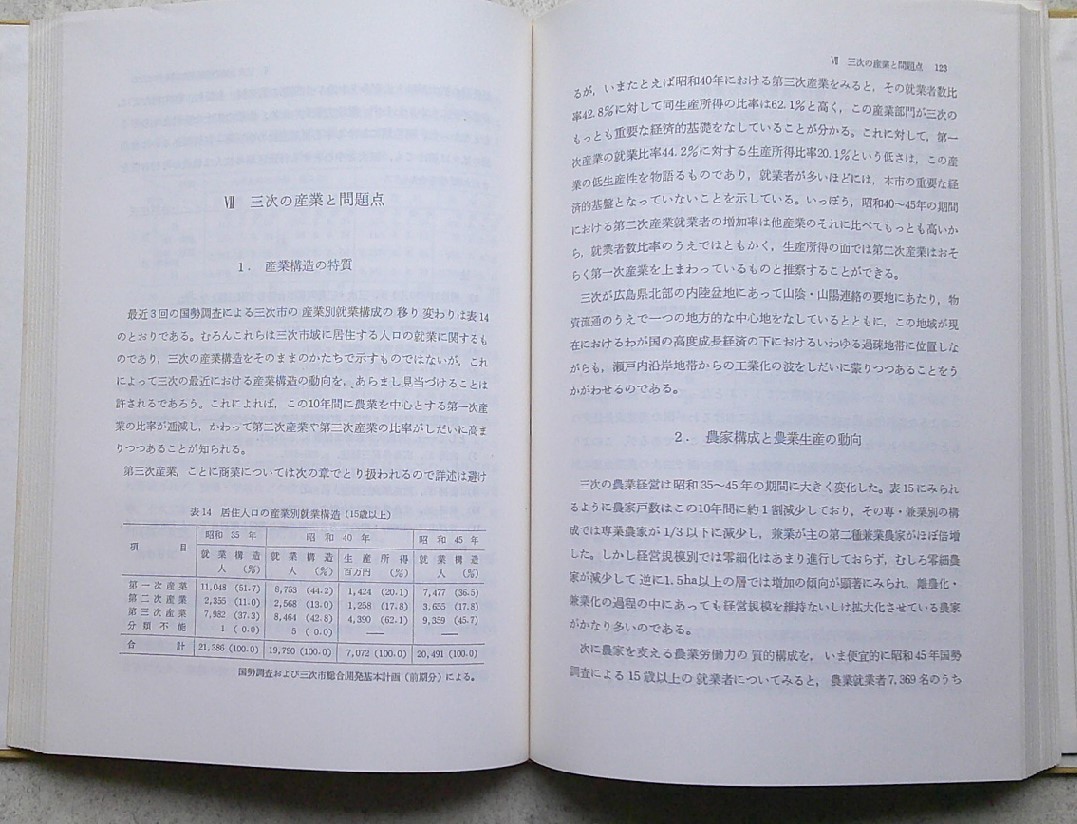 Ⅶ 三次の産業と問題点
1. 産業構造の特質
最近3回の国勢調査による三次市の産業別就業構成の移り変わりは表14
のとおりである。むろんこれらは三次市域に居住する人口の就業に関するも
のであり、三次の産業構造をそのままのかたちで示すものではないが、これ
によって三次の最近における産業構造の動向を、あらまし見当づけることは
許されるであろう。これによれば、この10年間に農業を中心とする第一次産
業の比率が逓減し、かわって第二次産業や第三次産業の比率がしだいに高ま
りつつあることが知られる。
第三次産業、ことに商業については次の章でとり扱われるので詳述は避け
表14 居住人口の産業別就業構造(15歳以上)
項 目 昭和 35 年 昭 和 40 年 昭 和 45 年
就業構造 就業構造 生産所得 就業構造
人 (%) 人 (%) 百万円 (%) 人 (%)
第一次産業 11,048 (51.7) 8,753 (44.2) 1,424 (20.1) 7,477 (36.5)
第二次産業 2,355 (11.0) 2,568 (13.0) 1,258 (17.8) 3,655 (17.8)
第三次産業 7,982 (37.3) 8,464 (42.8) 4,390 (62.1) 9,359 (45.7)
分類不能 1 (0.0) 5 (0.0) ― ―
合 計 21,386 (100.0) 19,790 (100.0) 7,072 (100.0) 20,491 (100.0)
国勢調査および三次市総合開発基本計画(前期分)による。
Ⅶ 三次の産業と問題点 123
るが、いまたとえば昭和40年における第三次産業をみると、その就業者数比
率42.8%に対して同生産所得の比率は62.1%と高く、この産業部門が三次の
もっとも重要な経済的基礎をなしていることが分かる。これに対して、第一
次産業の就業比率44.2%に対する生産所得比率20.1%という低さは、この産
業の低生産性を物語るものであり、就業者が多いほどには、本市の重要な経
済的基盤となっていないことを示している。いっぽう、昭和40〜45年の期間
における第二次産業就業者の増加率は他産業のそれに比べてもっとも高いか
ら、就業者数比率のうえではともかく、生産所得の面では第二次産業はおそ
らく第一次産業を上まわっているものと推察することができる。
三次が広島県北部の内陸盆地にあって山陰・山陽連絡の要地にあたり、物
資流通のうえで一つの地方的な中心地をなしているとともに、この地域が現
在におけるわが国の高度成長経済の下におけるいわゆる過疎地帯に位置しな
がらも、瀬戸内沿岸地帯からの工業化の波をしだいに蒙りつつあることをう
かがわせるのである。
2. 農家構成と農業生産の動向
三次の農業経営は昭和35〜45年の期間に大きく変化した。表15にみられ
るように農家戸数はこの10年間に約1割減少しており、その専・兼業別の構
成では専業農家が1/3以下に減少し、兼業が主の第二種兼業農家がほぼ倍増
した。しかし経営規模別では零細化はあまり進行しておらず、むしろ零細農
家が減少して逆に1.5ha以上の層では増加の傾向が顕著にみられ、離農化・
兼業化の過程の中にあっても経営規模を維持ないしは拡大化させている農家
がかなり多いのである。
次に農家を支える農業労働力の質的構成を、いま便宜的に昭和45年国勢
調査による15歳以上の就業者についてみると、農業就業者7,369名のうち